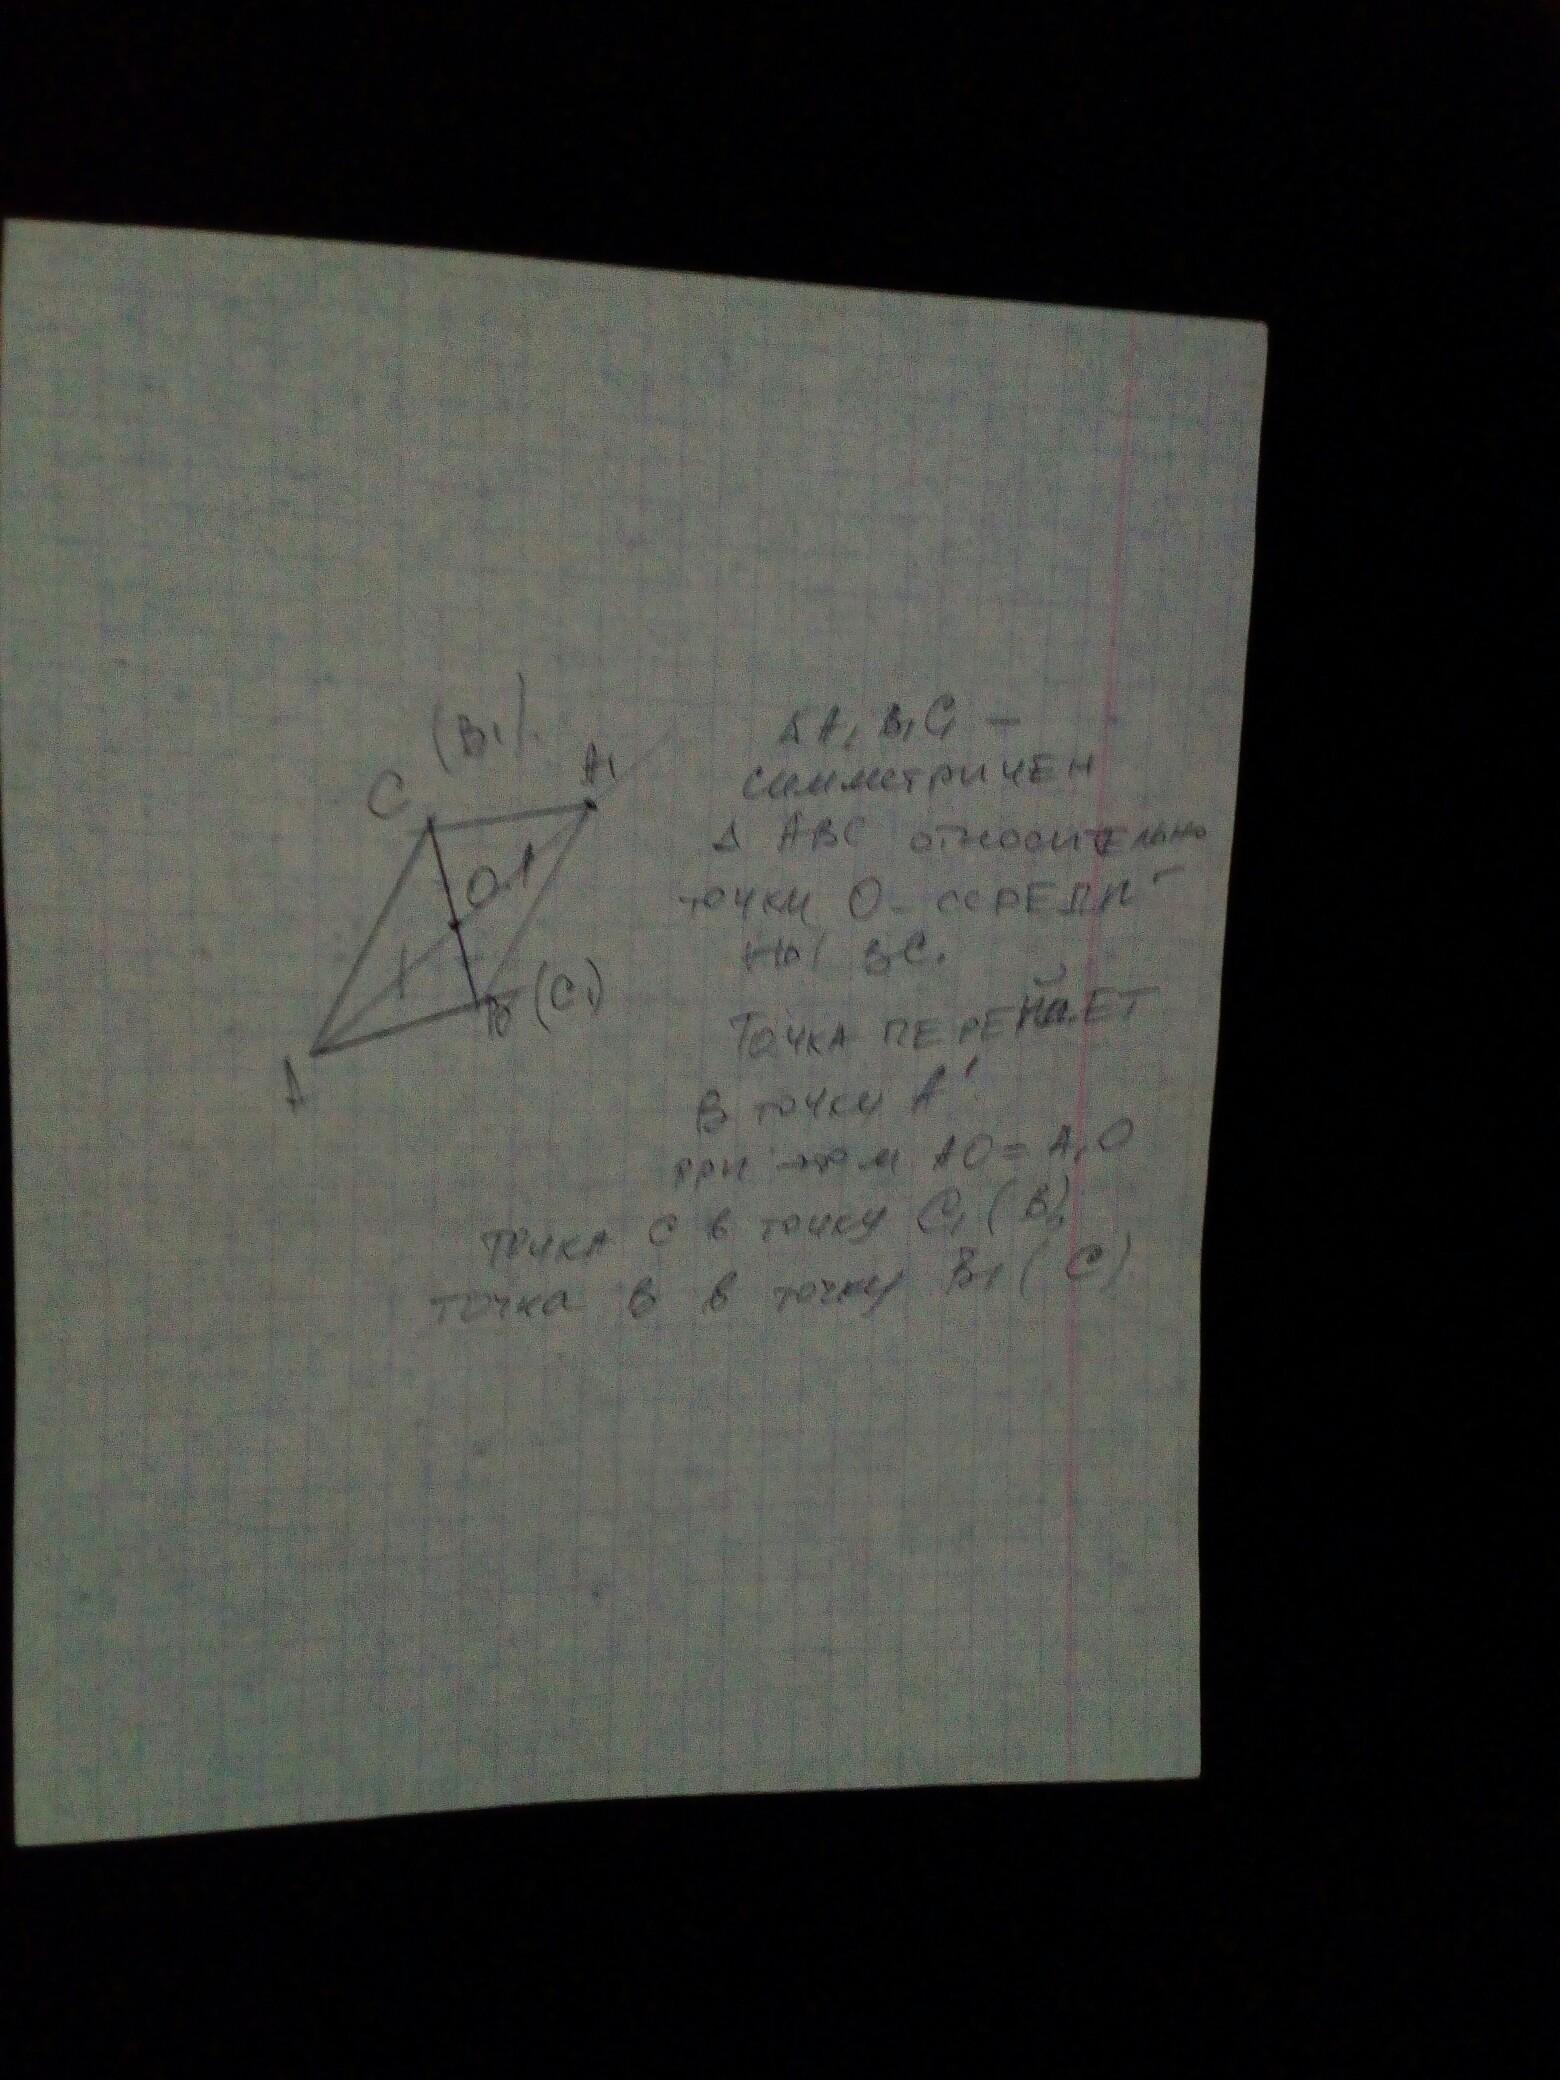 (B₁)
C
A₁
O
B (C₁)
A
Δ A₁ B₁ C₁ —
симметричен
Δ ABC относительно
точки O - середи-
ны BC.
Точка перейдет
в точку A'
при этом AO = A₁O
точка C в точку C₁ (B)
точка B в точку B₁ (C)